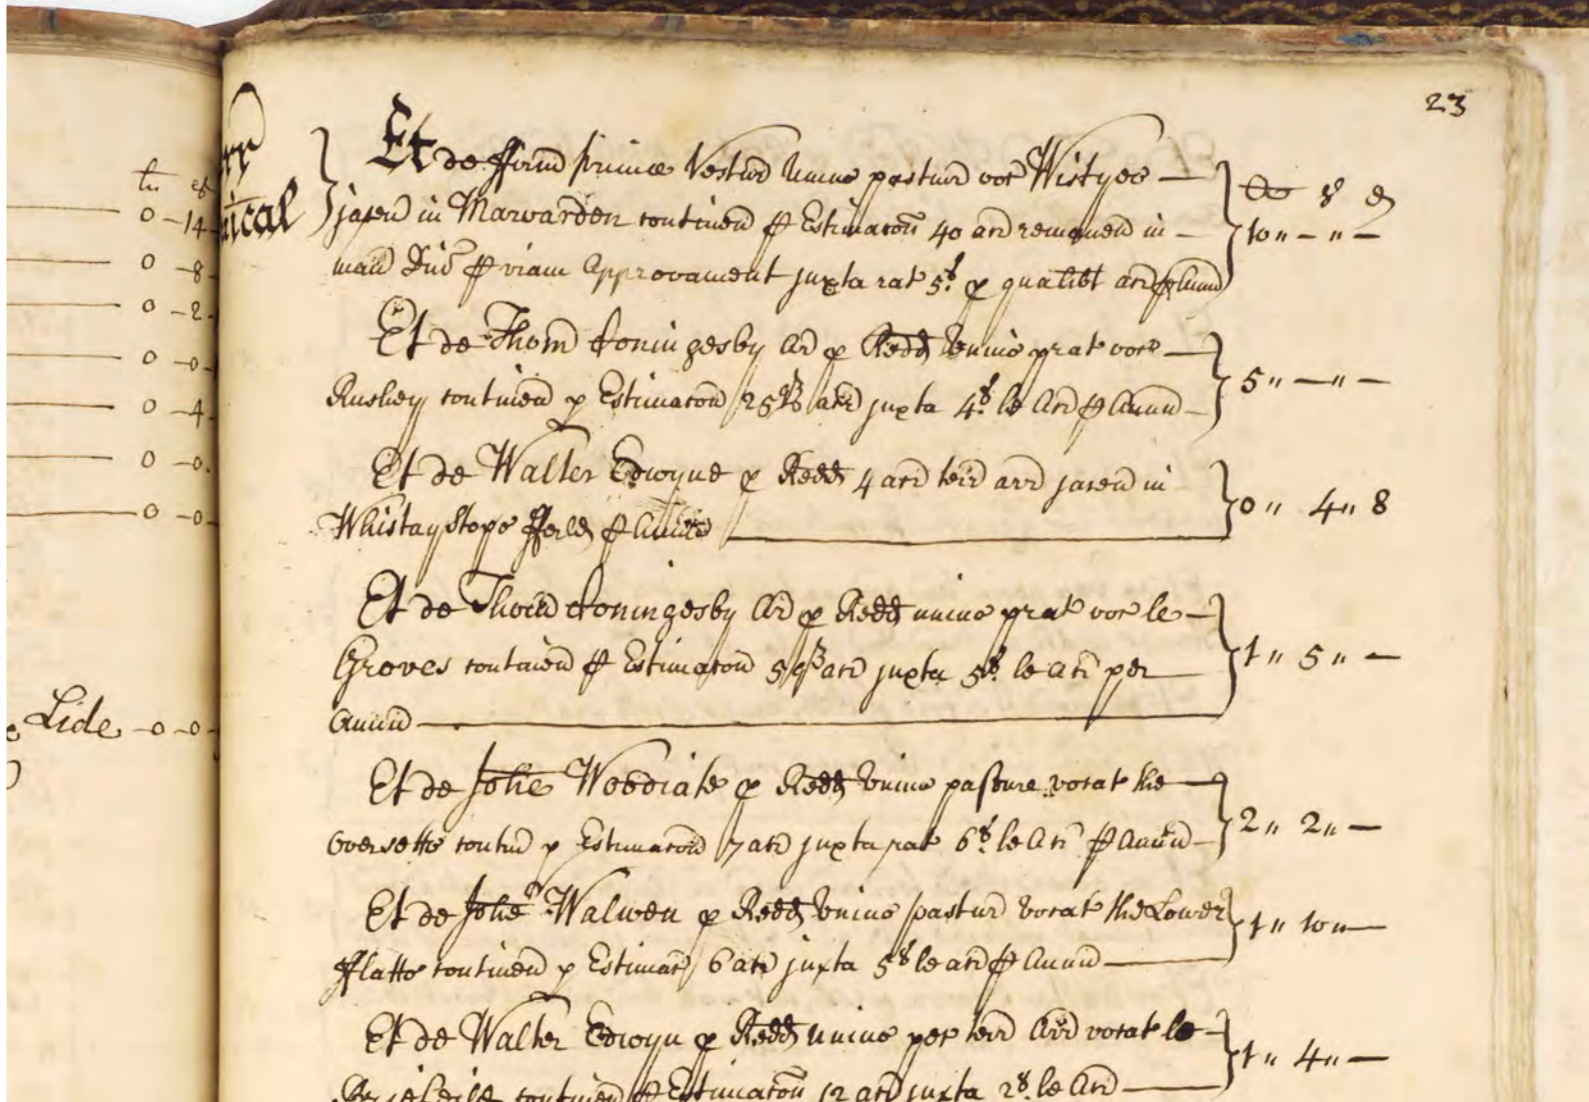 23
li s
0 - 14
0 - 8
0 - 2
0 - 0
0 - 4
0 - 0
0 - 0
Lide - 0 - 0
Et de ffirm prime Vestur unius pastur voc Wistyes
jacen in Marwarden continen p Estimacon 40 acr remanen in 10 " — " —
man Dni p viam Approvament juxta rat 5s p qualibt acr p Annu
Et de Thom Coningesby Ar p Redd unius prat voc 5 " — " —
Rushey continen p Estimacon 25 acr juxta 4s le Acr p Annum
Et de Walter Edwyne p Redd 4 acr terr arr jacen in 0 " 4 " 8
Whistaystope ffeild p Annum
Et de Thom Coningesby Ar p Redd unius prat voc le
Groves continen p Estimacon 5 acr juxta 5s le Acr per 1 " 5 " —
Annum
Et de Johe Woodiate p Redd unius pasture vocat the
Oversetts contin p Estimacon 7 acr juxta rat 6s le Acr p Annum 2 " 2 " —
Et de Johe Walwen p Redd unius pastur vocat the Lower 1 " 10 " —
fflatts continen p Estimac 6 acr juxta 5s le acr p Annum
Et de Walter Edwyn p Redd unius pec terr Arr vocat le 1 " 4 " —
continen p Estimacon 12 acr juxta 2s le Acr